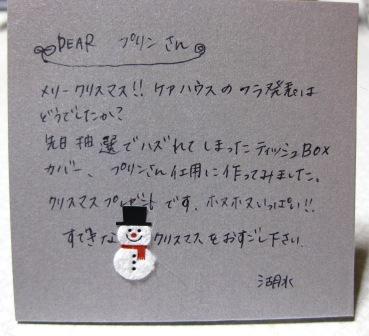 DEAR プリンさん
メリークリスマス!! ケアハウスのフラ発表は
どうでしたか?
先日抽選でハズれてしまったティッシュBOX
カバー、プリンさん仕用に作ってみました。
クリスマスプレゼントです。ホスホスいっぱい!!
すてきなクリスマスをおすごし下さい
湖水